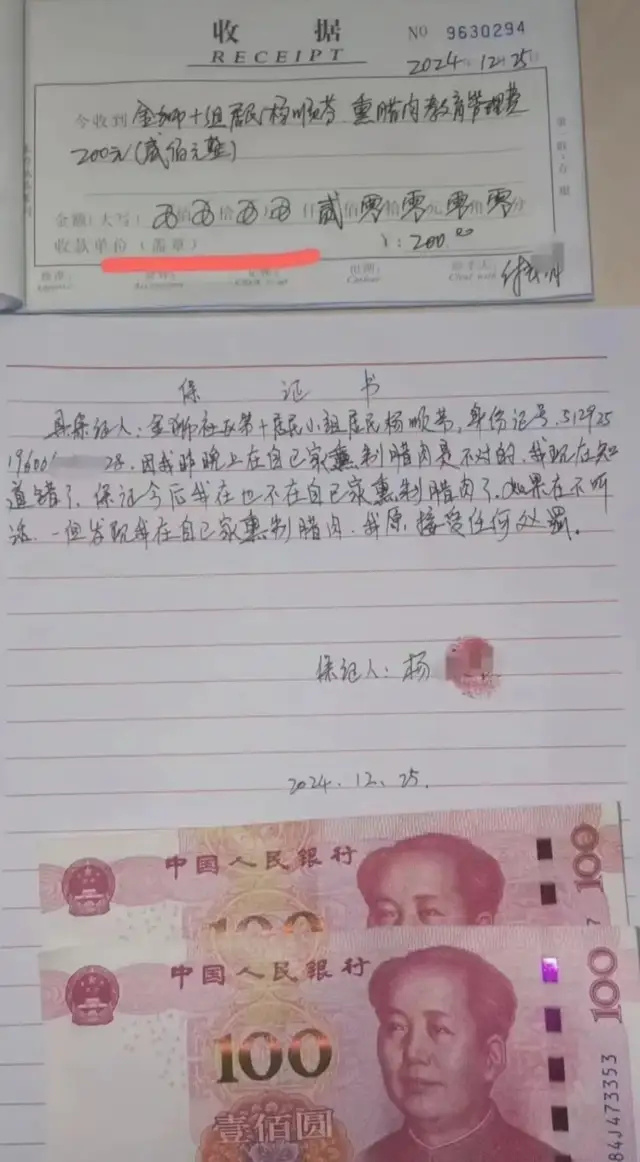 收据
RECEIPT
№ 9630294
2024年12月25日
今收到 金狮十组居民杨顺芬 熏腊肉教育管理费
200元(贰佰元整)
金额(大写): 佰 拾 万 仟 贰佰零拾零元零角零分
收款单位(盖章) ¥:200.00
保 证 书
具保证人:金狮社区第十居民小组居民杨顺芬,身份证号,512925
19600 28.因我昨晚上在自己家熏制腊肉是不对的,我现在知
道错了,保证今后我在也不在自己家熏制腊肉了,如果在不听
话,一但发现我在自己家熏制腊肉,我原接受任何处罚。
保证人:杨
2024.12.25.
中国人民银行
100
100
中国人民银行
100
100
壹佰圆
84J473353